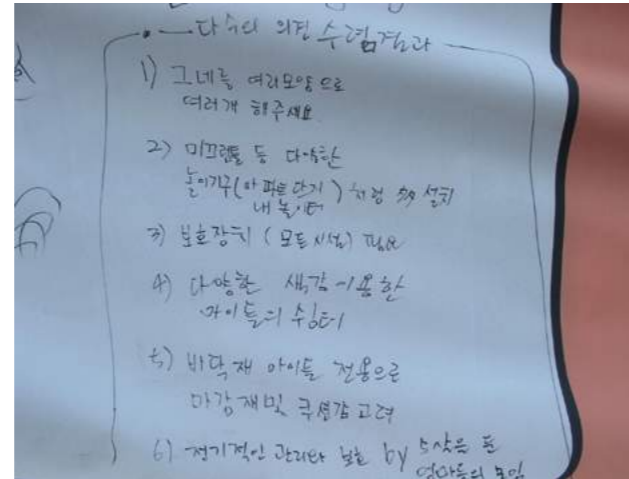 다수의 의견 수렴결과
1) 그네를 여러모양으로
여러개 해주세요
2) 미끄럼틀 등 다양한
놀이기구(아파트단지) 처럼 설치
내 놀이터
3) 보호장치 (모든시설) 필요
4) 다양한 색감 이용한
아이들의 쉼터
5) 바닥재 아이들 전용으로
마감재및 쿠션감 고려
6) 정기적인 관리와 보호 by 5살을 둔
엄마들의 모임